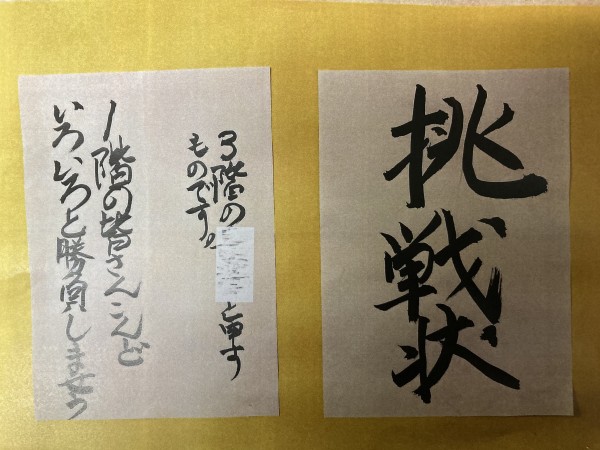 挑戦状
3階の と申す
ものです。
1階の皆さんこんど
いろいろと勝負しませう